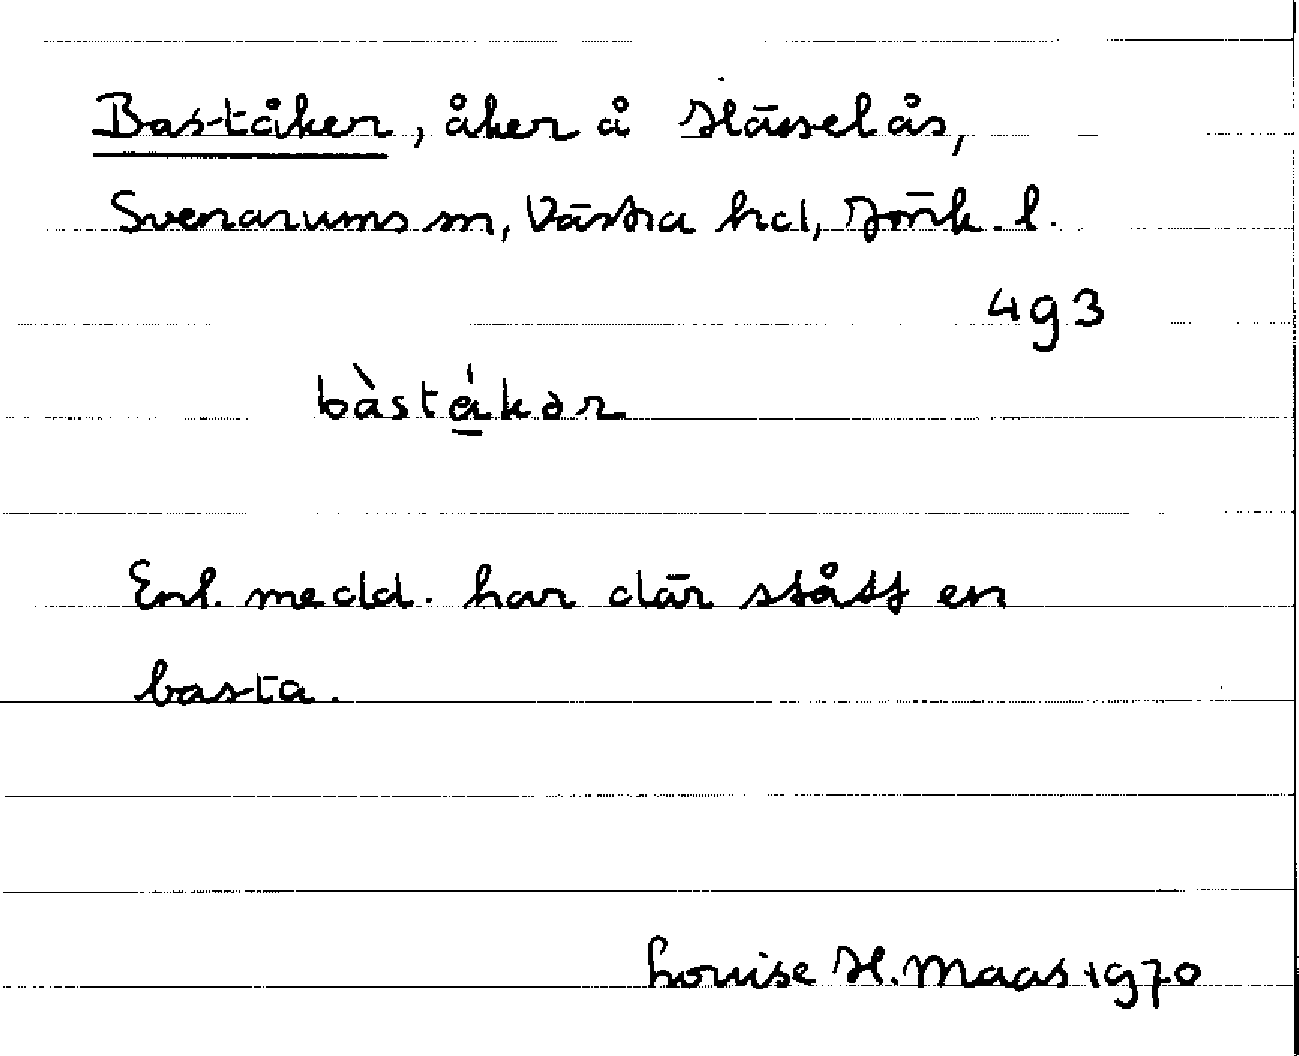 Baståker, åker å Hässelås,
Svenarums sn, Västra hd, Jönk. l.
4g3
bàstákər
Enl. medd. har där stått en
basta.
Louise H. Maas 1970